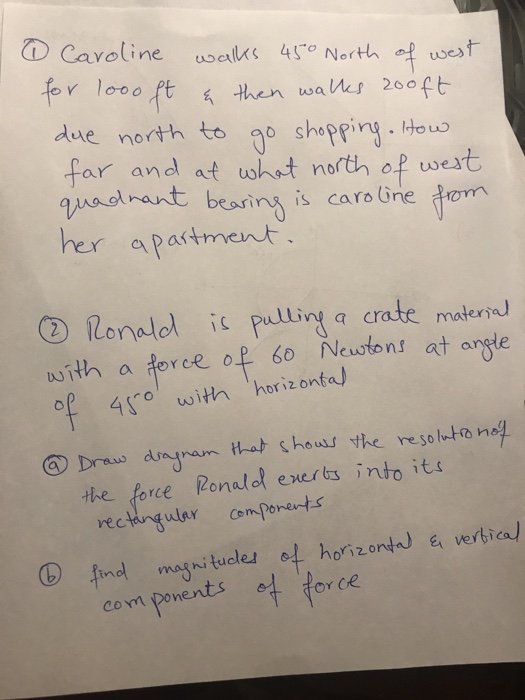 ① Caroline walks 45° North of west
for 1000 ft & then walks 200ft
due north to go shopping. How
far and at what north of west
quadrant bearing is caroline from
her apartment.
② Ronald is pulling a crate material
with a force of 60 Newtons at angle
of 45° with horizontal
ⓐ Draw diagram that shows the resolution of
the force Ronald exerts into its
rectangular components
ⓑ find magnitudes of horizontal & vertical
components of force